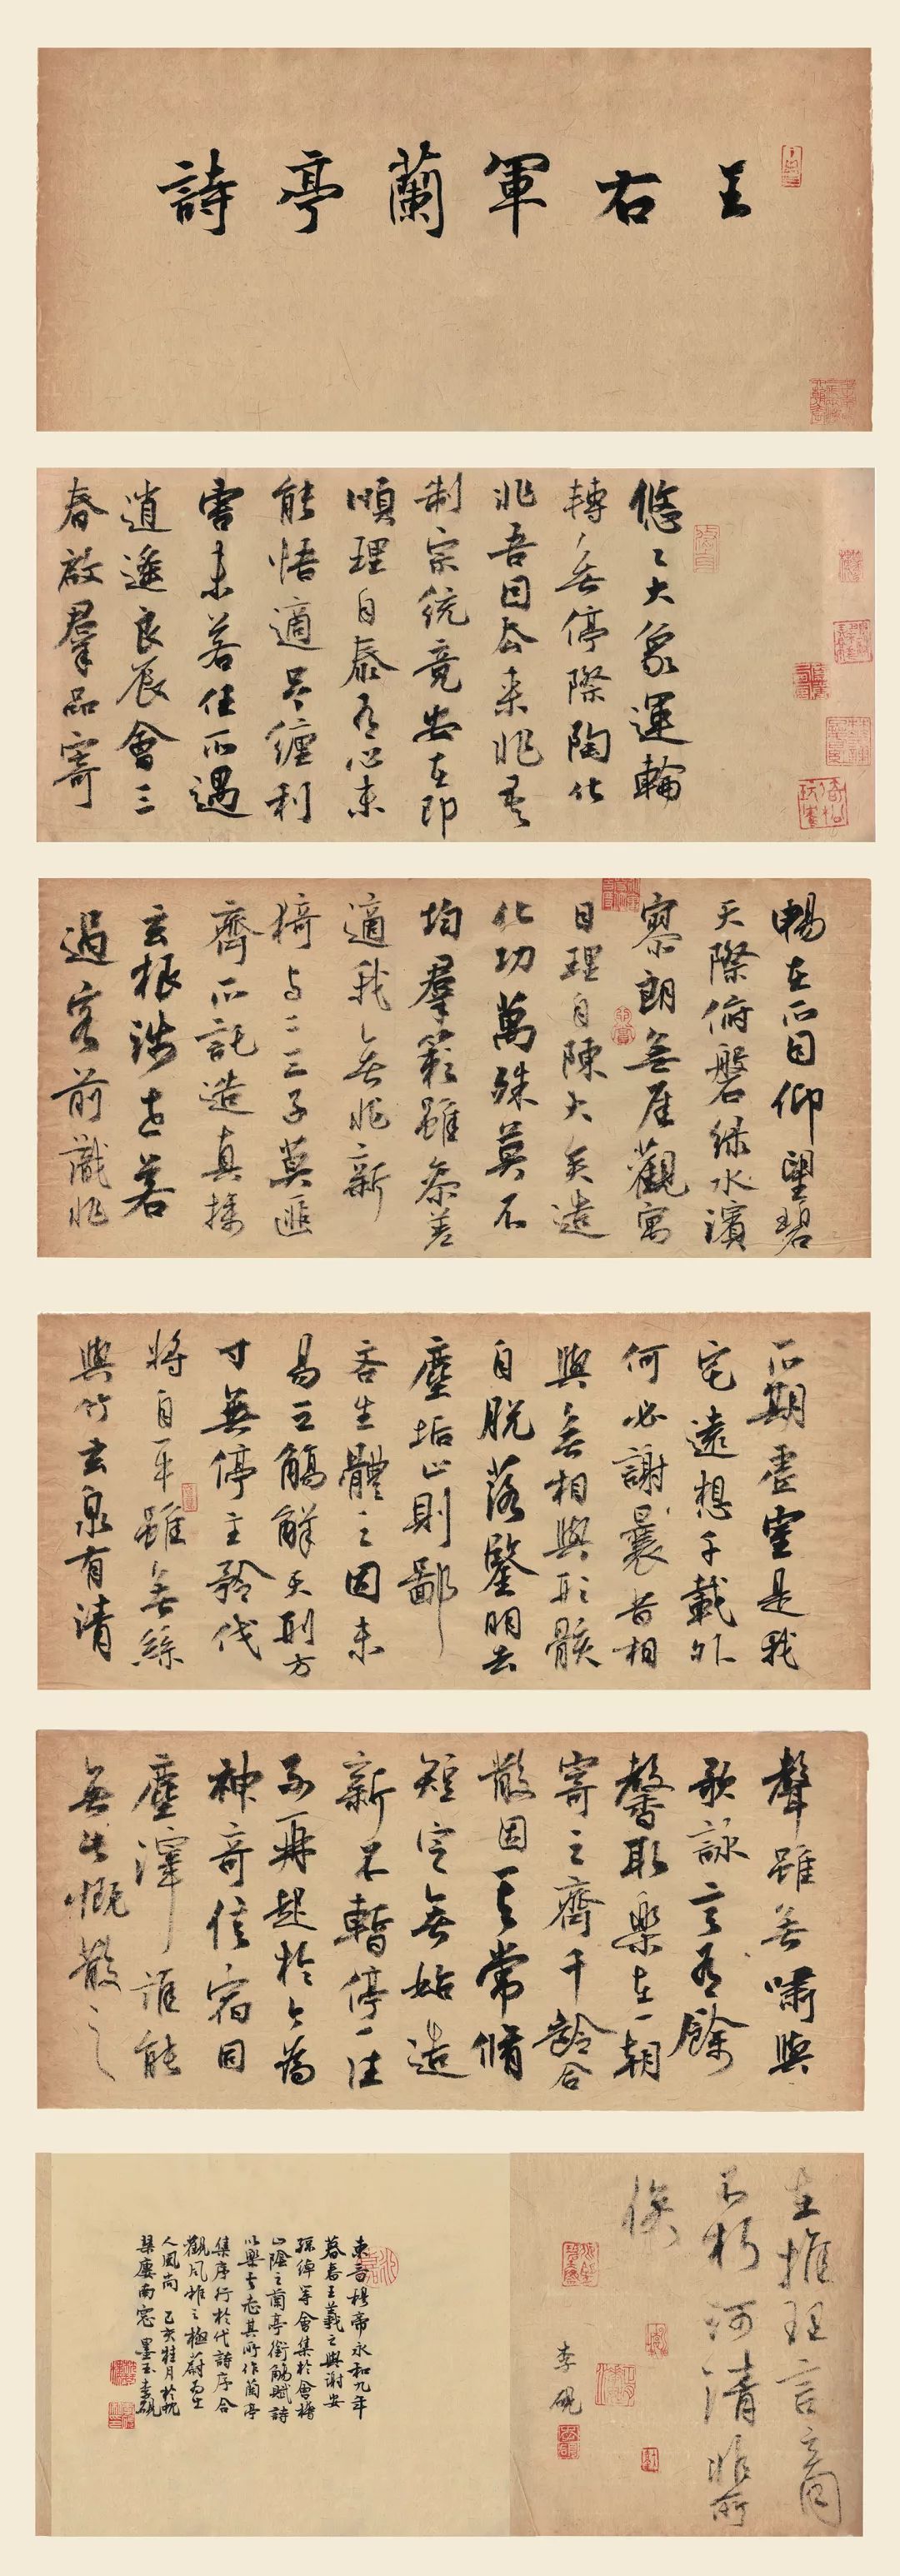 王右軍蘭亭詩
悠〻大象運輪
轉〻無停際陶化
非吾因去来非吾
制宗統竟安在即
順理自泰有心未
能悟適足纏利
害未若任所遇
逍遙良辰會三
春啟羣品寄
暢在所因仰望碧
天際俯磐緑水濱
寥朗無厓觀寓
目理自陳大矣造
化功萬殊莫不
均羣籟雖参差
適我無非新
猗与二三子莫匪
齊所託造真探
玄根涉世若
過客前識非
所期虛室是我
宅遠想千載外
何必謝曩昔相
與無相與形骸
自脫落鑒明去
塵垢止則鄙
吝生體之固未
易三觴解天刑方
寸無停主矜伐
將自平雖無絲
與竹玄泉有清
聲雖無嘯與
歌詠言有餘
馨取樂在一朝
寄之齊千齡合
散固其常脩
短定無始造
新不暫停一往
不再起於今為
神奇信宿同
塵滓誰能
無此慨散之
在推理言立同
不朽河清非所
俟
李硯
東晉穆帝永和九年
暮春王羲之與謝安
孫綽等會集於會稽
山陰之蘭亭銜觴賦詩
以樂其志其所作蘭亭
集序行於代詩序合
觀風雅之極蔚為士
人風尚 乙亥桂月於杭
南窓 墨玉李硯